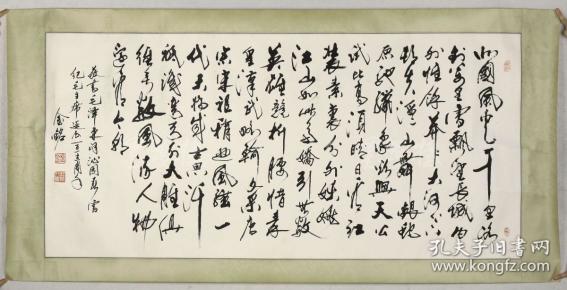 北国风光千里冰
封万里雪飘望长城内
外惟余莽莽大河上下
顿失滔滔山舞银蛇
原驰蜡象欲与天公
试比高须晴日看红
装素裹分外妖娆
江山如此多娇引无数
英雄竞折腰惜秦
皇汉武略输文采唐
宗宋祖稍逊风骚一
代天骄成吉思汗
只识弯弓射大雕俱
往矣数风流人物
还看今朝
孔夫子旧书网
www.kongfz.com